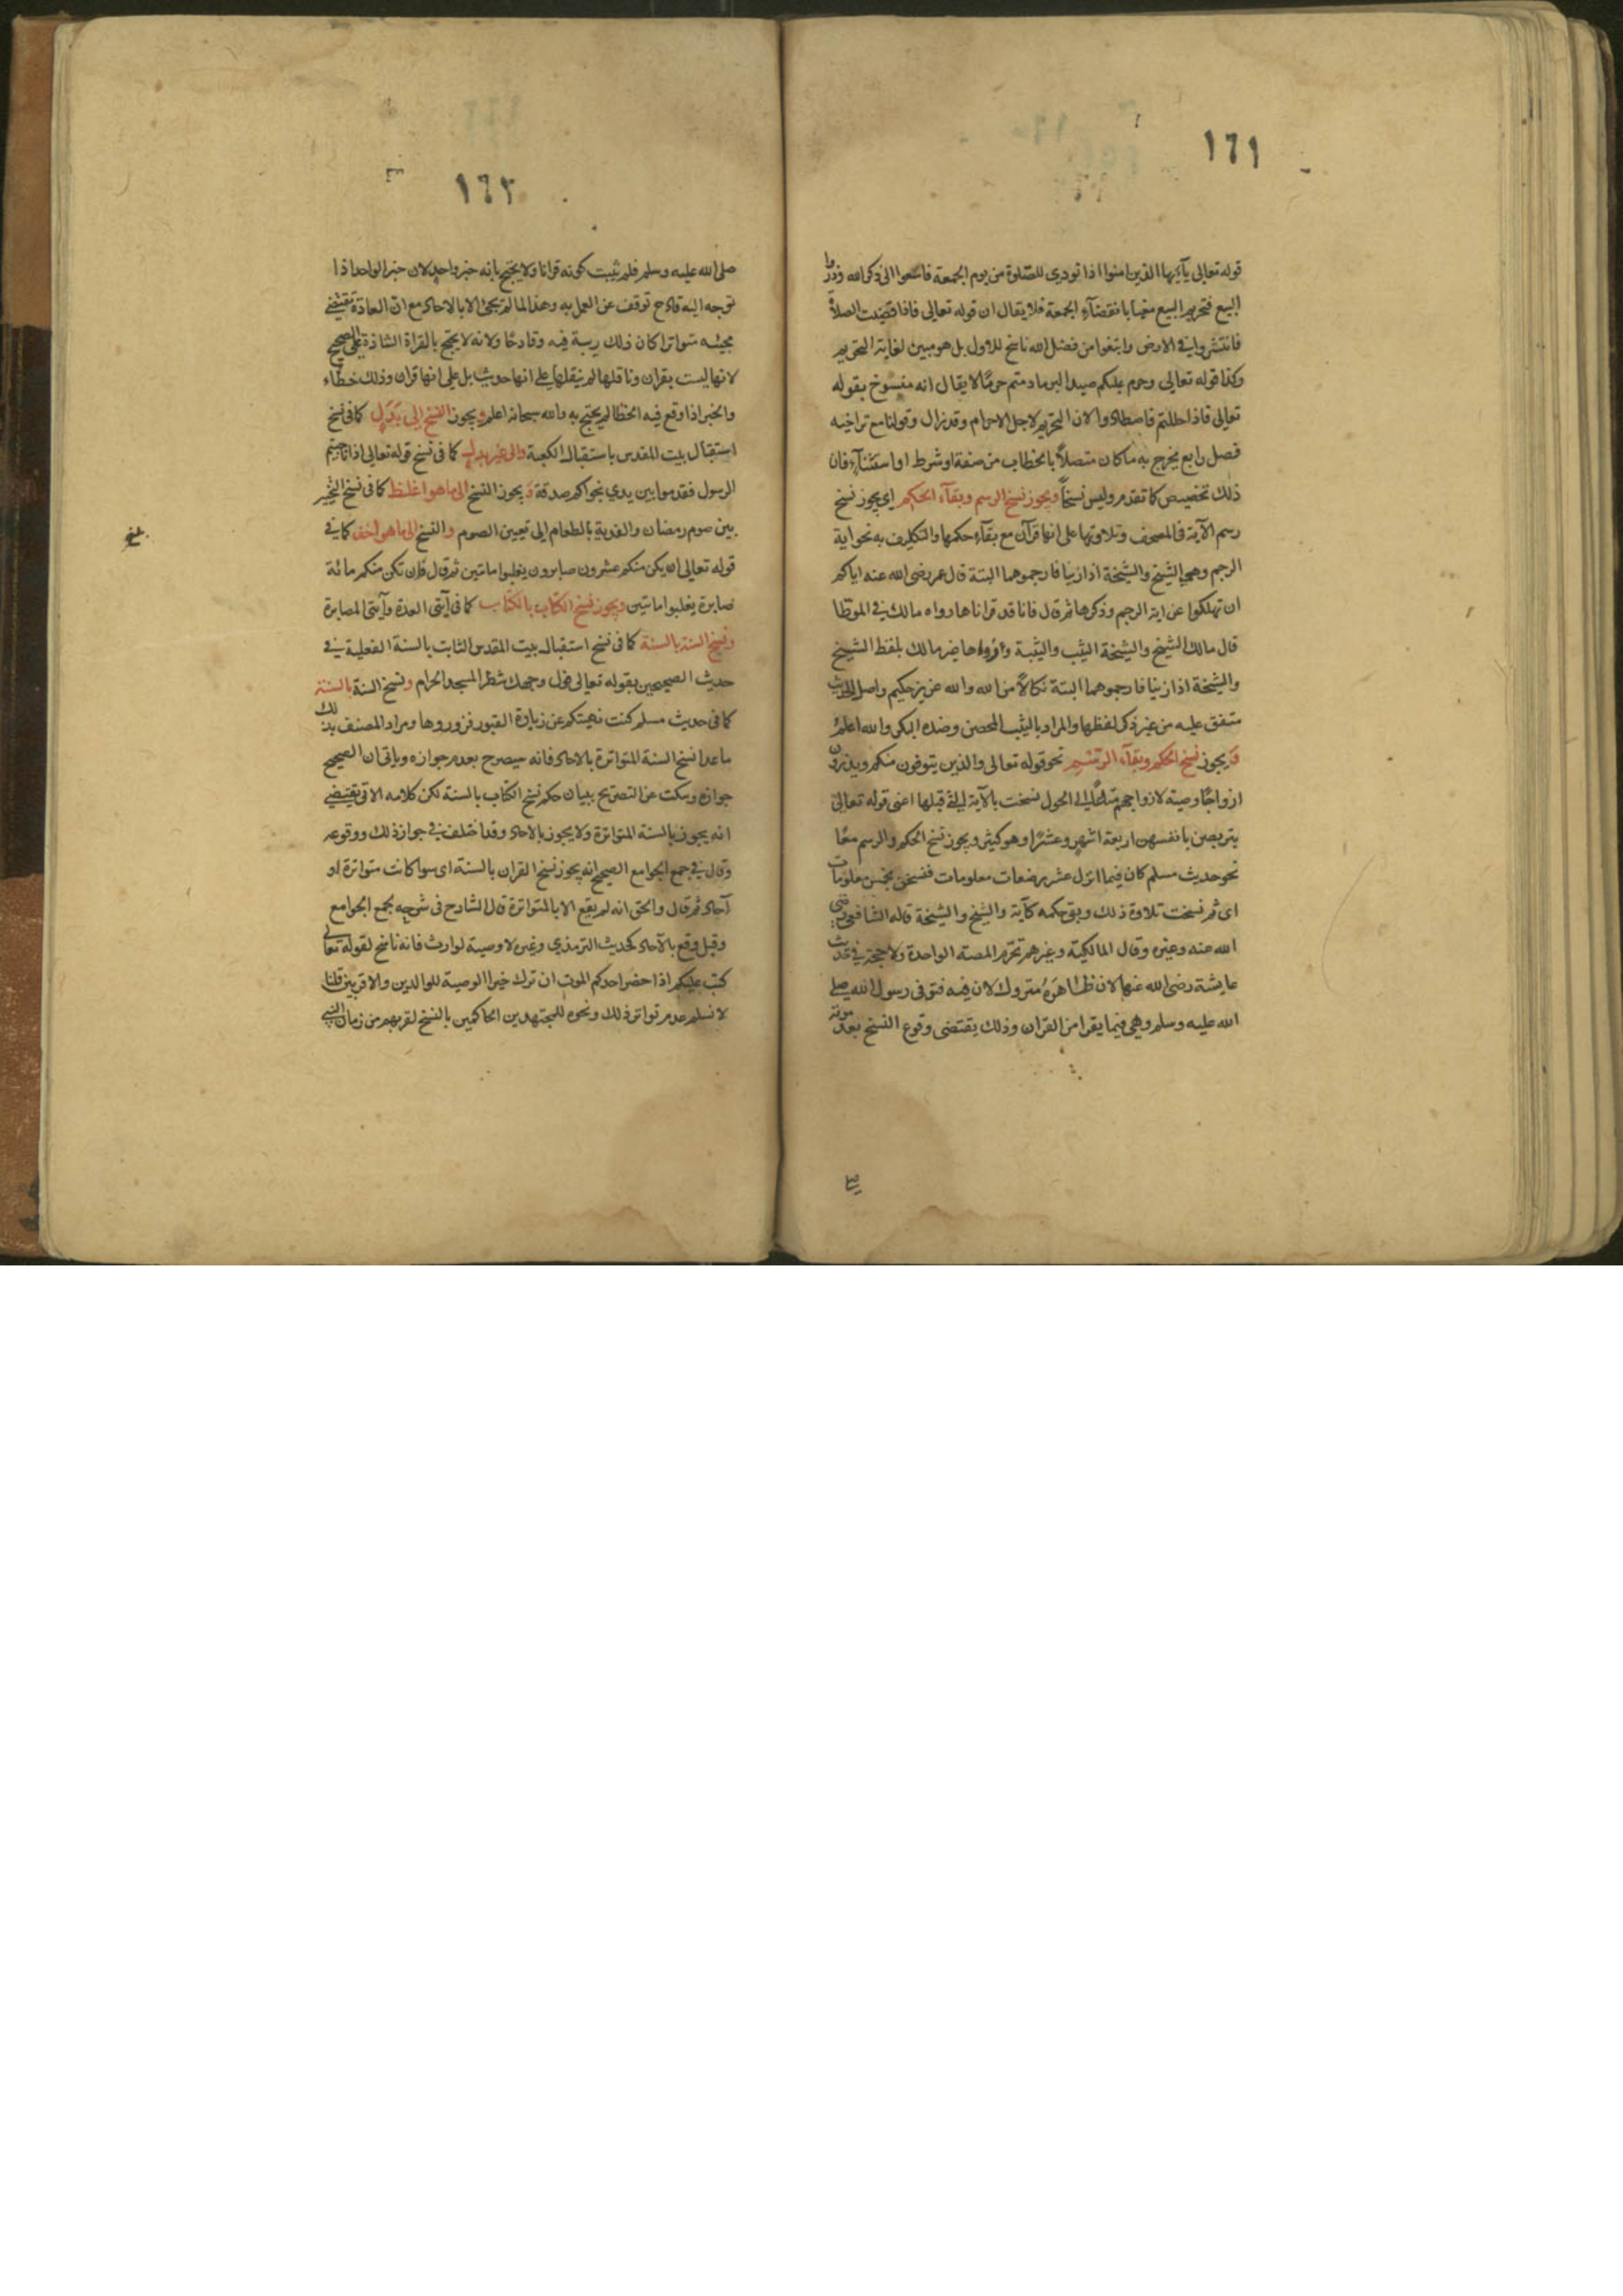 ١٦١
قوله تعالى يآءيها الذين امنوا اذا نودى للصلوة من يوم الجمعة فاسعوا الى ذكر الله وذروا
البيع فتحريم البيع مغيا بانقضآء الجمعة فلا يقال ان قوله تعالى فاذا قضيت الصلاة
فانتشروا في الارض وابتغوا من فضل الله ناسخ للاول بل هو مبين لغاية التحريم
وكذا قوله تعالى وحرم عليكم صيد البر ما دمتم حرمًا لا يقال انه منسوخ بقوله
تعالى فاذا حللتم فاصطادوا لان التحريم لاجل الاحرام وقد زال وقولنا مع تراخيه
فصل رابع يخرج به ما كان متصلاً بالخطاب من صفة او شرط او استثنآء فان
ذلك تخصيص كما تقدم وليس نسخاً ويجوز نسخ الرسم وبقآء الحكم اي يجوز نسخ
رسم الآية في المصحف وتلاوتها على انها قرآن مع بقآء حكمها والتكليف به نحو اية
الرجم وهي الشيخ والشيخة اذا زنيا فارجموهما البتة قال عمر رضى الله عنه اياكم
ان تهلكوا عن اية الرجم وذكرها ثم قال فانا قد قراناها رواه مالك في الموطا
قال مالك الشيخ والشيخة الثيب والثيبة ورواها غير مالك بلفظ الشيخ
والشيخة اذا زنيا فارجموهما البتة نكالاً من الله والله عزيز حكيم واصل الحديث
متفق عليه من غير ذكر لفظها والمراد بالثيب المحصن وضده البكر والله اعلم
ويجوز نسخ الحكم وبقآء الرسم نحو قوله تعالى والذين يتوفون منكم ويذرون
ازواجًا وصية لازواجهم متاعًا الى الحول نسخت بالآية التي قبلها اعنى قوله تعالى
يتربصن بانفسهن اربعة اشهر وعشرًا وهو كثير ويجوز نسخ الحكم والرسم معًا
نحو حديث مسلم كان فيما انزل عشر رضعات معلومات فنسخن بخمس معلومات
اى ثم نسخت تلاوة ذلك وبقى حكمه كآية والشيخ والشيخة قاله الشافعي رضى
الله عنه وغيره وقال المالكية وغيرهم تحرم المصة الواحدة ولا حجة في حديث
عايشة رضى الله عنها لان ظاهرَهُ متروك لان فيه فتوفى رسول الله صلى
الله عليه وسلم وهي فيما يقرا من القران وذلك يقتضى وقوع النسخ بعد موته
١٦٢
صلى الله عليه وسلم فلم يثبت كونه قرانا ولا يحتج بانه خبر واحد لان خبر الواحد اذا
توجه اليه قادح توقف عن العمل به وهذا لما لم يجئ الا بالاحاد مع ان العادة تقتضي
مجيئه متواترا كان ذلك ريبة فيه وقادحًا ولانه لا يحتج بالقراة الشاذة على الصحيح
لانها ليست بقران وناقلها لم ينقلها على انها حديث بل على انها قران وذلك خطاء
والخبر اذا وقع فيه الخطا لم يحتج به والله سبحانه اعلم ويجوز النسخ الى بدل كما فى نسخ
استقبال بيت المقدس باستقبال الكعبة والى غير بدل كما فى نسخ قوله تعالى اذا ناجيتم
الرسول فقدموا بين يدي نجواكم صدقة ويجوز النسخ الى ما هو اغلظ كما فى نسخ التخيير
بين صوم رمضان والفدية بالطعام الى تعيين الصوم والنسخ الى ما هو اخف كما في
قوله تعالى ان يكن منكم عشرون صابرون يغلبوا مائتين ثم قال فان تكن منكم مائة
صابرة يغلبوا مائتين ويجوز نسخ الكتاب بالكتاب كما فى آيتى العدة وآيتى المصابرة
ونسخ السنة بالسنة كما فى نسخ استقبال بيت المقدس الثابت بالسنة الفعلية في
حديث الصحيحين بقوله تعالى فول وجهك شطر المسجد الحرام ونسخ السنة بالسنة
كما فى حديث مسلم كنت نهيتكم عن زيارة القبور فزوروها ومراد المصنف بذلك
ما عدا نسخ السنة المتواترة بالاحاد فانه سيصرح بعدم جوازه وياتى ان الصحيح
جوازه وسكت عن التصريح ببيان حكم نسخ الكتاب بالسنة لكن كلامه الاتى يقتضي
انه يجوز بالسنة المتواترة ولا يجوز بالاحاد وقد اختلف في جواز ذلك ووقوعه
وقال في جمع الجوامع الصحيح انه يجوز نسخ القران بالسنة اى سوا كانت متواترة او
آحاد ثم قال والحق انه لم يقع الا بالمتواترة قال الشارح فى شرحه لجمع الجوامع
وقيل وقع بالآحاد كحديث الترمذي وغيره لا وصية لوارث فانه ناسخ لقوله تعالى
كتب عليكم اذا حضر احدكم الموت ان ترك خيرا الوصية للوالدين والاقربين قلنا
لا نسلم عدم تواتر ذلك ونحوه للمجتهدين الحاكمين بالنسخ لقربهم من زمان النبي